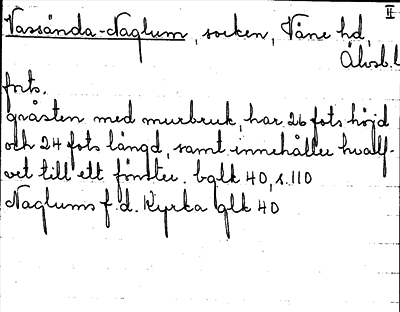 II
Vassända-Naglum, socken, Väne hd,
Älvsb. l
forts.
gråsten med murbruk, har 26 fots höjd
och 24 fots längd, samt innehåller hvalf-
vet till ett fönster. bqlk 40, s. 110
Naglums f.d. Kyrka qlk 40